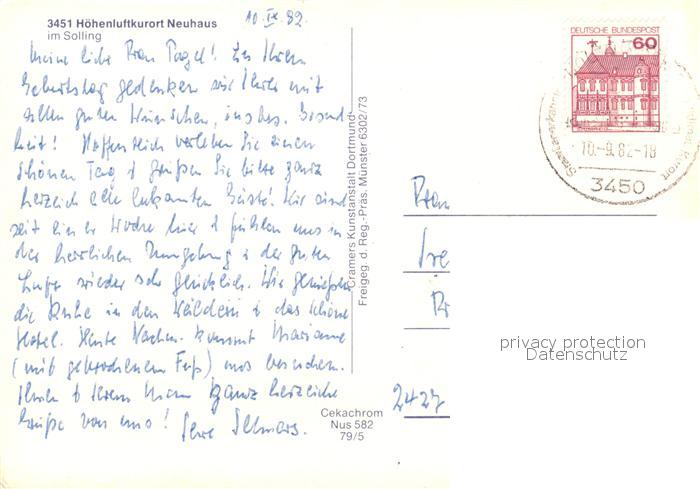 3451 Höhenluftkurort Neuhaus
im Solling
10. IX. 82.
Meine liebe Frau Pagel! Zu Ihrem
Geburtstag gedenken wir Ihrer mit
allen guten Wünschen, insbes. Gesund-
heit! Hoffentlich verleben Sie einen
schönen Tag & grüßen Sie bitte ganz
herzlich alle bekannten Gäste! Wir sind
seit einer Woche hier & fühlen uns in
der herrlichen Umgebung & der guten
Luft wieder sehr glücklich. Wir genießen
die Ruhe in den Wäldern & das schöne
Hotel. Heute Nachm. kommt Marianne
(mit gebrochenem Fuß) uns besuchen.
Ihnen & Ihrem Mann ganz herzliche
Grüße von uns! Ihre
Cramers Kunstanstalt Dortmund
Freigeg. d. Reg.-Präs. Münster 6302/73
Cekachrom
Nus 582
79/5
DEUTSCHE BUNDESPOST
60
10.-9.82-18
3450
Frau
2427
privacy protection
Datenschutz